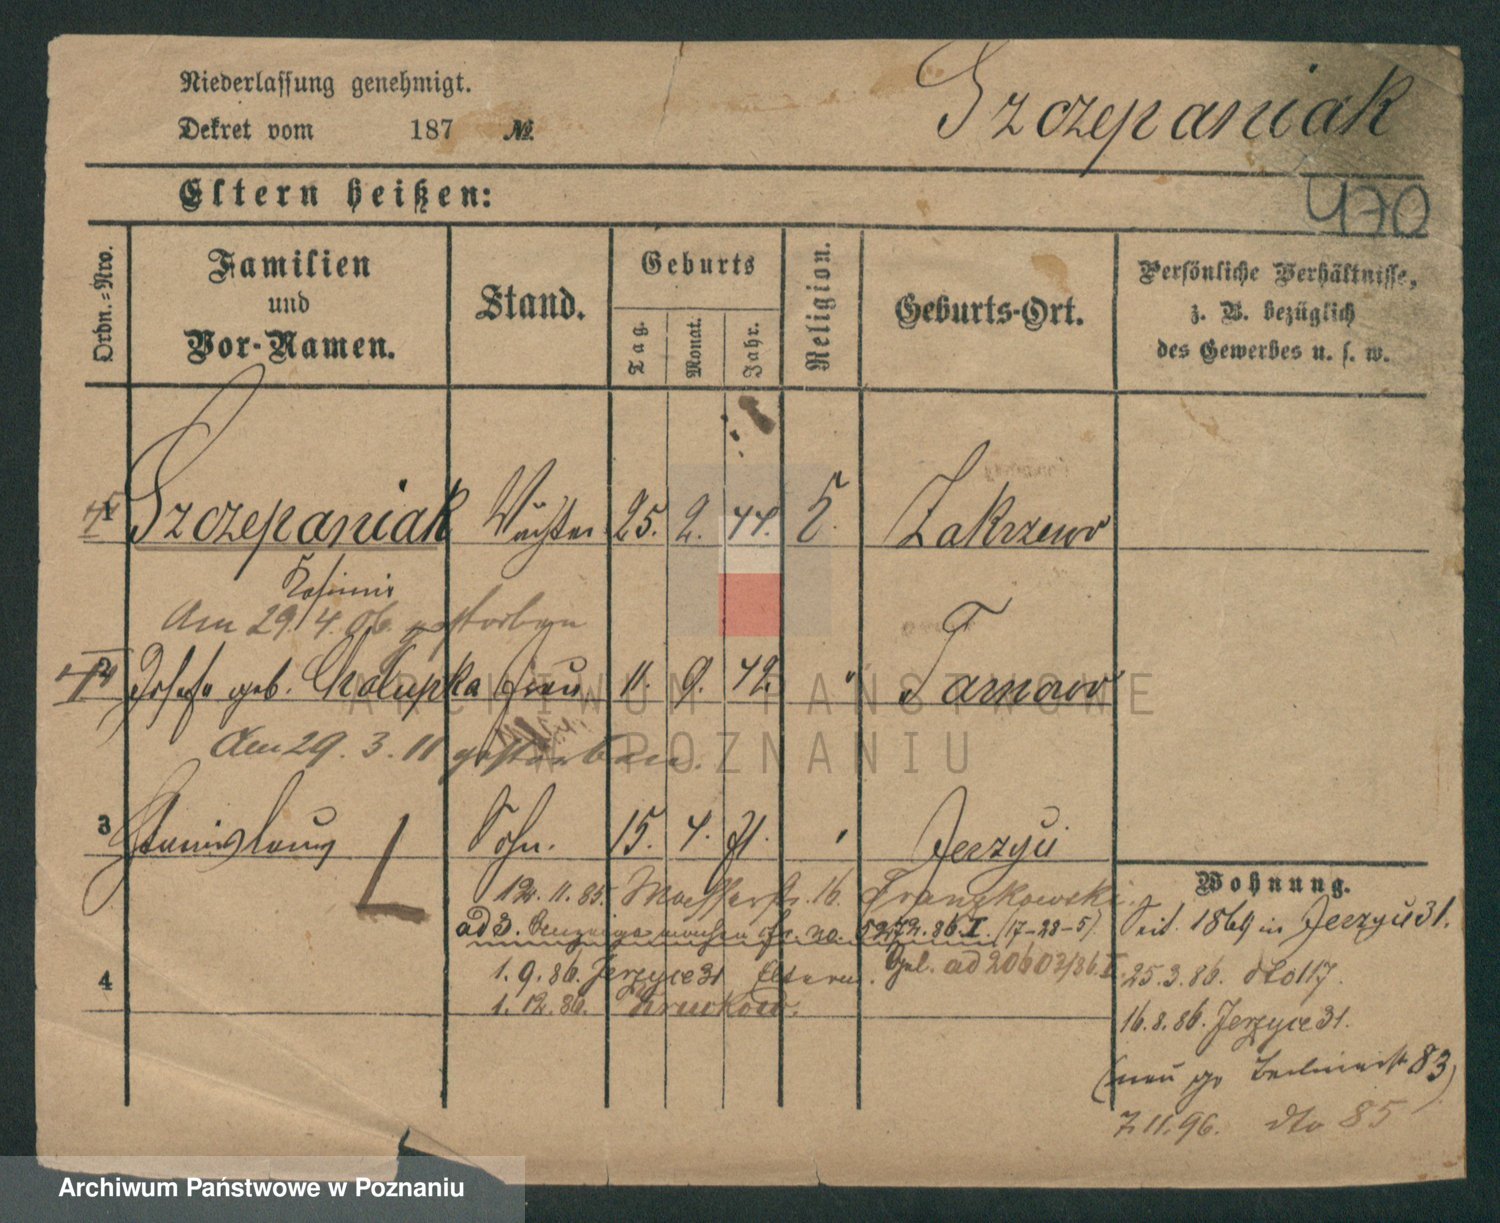 Niederlassung genehmigt.
Dekret vom 187 №
Szczepaniak
Eltern heißen:
470
Ordn.=Nro.
Familien
und
Vor-Namen.
Stand.
Geburts
Tag.
Monat.
Jahr.
Religion.
Geburts-Ort.
Persönliche Verhältnisse,
z. B. bezüglich
des Gewerbes u. s. w.
1 Szczepaniak Wächter 25. 2. 44. Zakrzewo
Kasimir
Am 29. 4. 06. gestorben
2 Josefa geb. Chalupka Frau 11. 9. 42. " Tarnowo
Am 29. 3. 11 gestorben.
3 Stanislaus Sohn. 15. 4. 71. " Jerzyce
12. 11. 85. 16. Franzkowski.
ad 3. 5272. 86. I. (17-28-5)
1. 9. 86. Jerzyce 31 Eltern. ad 20602/86. I.
4
1. 12. 86.
Wohnung.
Seit 1869 in Jerzyce 31.
25. 3. 86. dto 117.
16. 8. 86. Jerzyce 31.
(neu Berlinerstr 83)
7. 11. 96. dto 85
ARCHIWUM PAŃSTWOWE
W POZNANIU
Archiwum Państwowe w Poznaniu